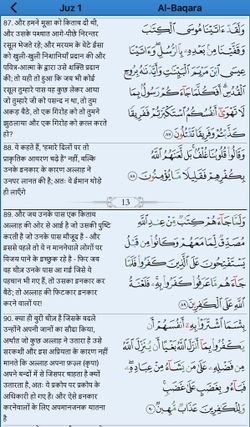 Juz 1
Al-Baqara
87. और हमने मूसा को किताब दी थी,
और उसके पश्चात आगे-पीछे निरन्तर
रसूल भेजते रहे; और मरयम के बेटे ईसा
को खुली-खुली निशानियाँ प्रदान की और
पवित्र-आत्मा के द्वारा उसे शक्ति प्रदान
की; तो यही तो हुआ कि जब भी कोई
रसूल तुम्हारे पास वह कुछ लेकर आया
जो तुम्हारे जी को पसन्द न था, तो तुम
अकड़ बैठे, तो एक गिरोह को तो तुमने
झुठलाया और एक गिरोह को क़त्ल करते
हो?
وَلَقَدْ ءَاتَيْنَا مُوسَى ٱلْكِتَٰبَ
وَقَفَّيْنَا مِنۢ بَعْدِهِۦ بِٱلرُّسُلِ ۖ وَءَاتَيْنَا
عِيسَى ٱبْنَ مَرْيَمَ ٱلْبَيِّنَٰتِ وَأَيَّدْنَٰهُ بِرُوحِ
ٱلْقُدُسِ ۗ أَفَكُلَّمَا جَآءَكُمْ رَسُولٌۢ بِمَا
لَا تَهْوَىٰٓ أَنفُسُكُمُ ٱسْتَكْبَرْتُمْ فَفَرِيقًا
كَذَّبْتُمْ وَفَرِيقًا تَقْتُلُونَ ٨٧
88. वे कहते हैं, "हमारे दिलों पर तो
प्राकृतिक आवरण चढ़े है" नहीं, बल्कि
उनके इनकार के कारण अल्लाह ने
उनपर लानत की है; अतः वे ईमान थोड़े
ही लाएँगे
وَقَالُوا۟ قُلُوبُنَا غُلْفٌۢ ۚ بَل لَّعَنَهُمُ ٱللَّهُ
بِكُفْرِهِمْ فَقَلِيلًا مَّا يُؤْمِنُونَ ٨٨
13
89. और जब उनके पास एक किताब
अल्लाह की ओर से आई है जो उसकी पुष्टि
करती है जो उनके पास मौजूद है - और
इससे पहले तो वे न माननेवाले लोगों पर
विजय पाने के इच्छुक रहे है - फिर जब
वह चीज़ उनके पास आ गई जिसे वे
पहचान भी गए हैं, तो उसका इनकार कर
बैठे; तो अल्लाह की फिटकार इनकार
करने वालों पर!
وَلَمَّا جَآءَهُمْ كِتَٰبٌ مِّنْ عِندِ ٱللَّهِ
مُصَدِّقٌ لِّمَا مَعَهُمْ وَكَانُوا۟ مِن قَبْلُ
يَسْتَفْتِحُونَ عَلَى ٱلَّذِينَ كَفَرُوا۟ فَلَمَّا
جَآءَهُم مَّا عَرَفُوا۟ كَفَرُوا۟ بِهِۦ ۚ فَلَعْنَةُ
ٱللَّهِ عَلَى ٱلْكَٰفِرِينَ ٨٩
90. क्या ही बुरी चीज़ है जिसके बदले
उन्होंने अपनी जानों का सौदा किया,
अर्थात जो कुछ अल्लाह ने उतारा है उसे
सरकशी और इस अप्रियता के कारण नहीं
मानते कि अल्लाह अपना फ़ज़्ल (कृपा)
अपने बन्दों में से जिसपर चाहता है क्यों
उतारता है, अतः वे प्रकोप पर प्रकोप के
अधिकारी हो गए है। और ऐसे इनकार
करनेवालों के लिए अपमानजनक यातना
है
بِئْسَمَا ٱشْتَرَوْا۟ بِهِۦٓ أَنفُسَهُمْ أَن
يَكْفُرُوا۟ بِمَآ أَنزَلَ ٱللَّهُ بَغْيًا أَن يُنَزِّلَ ٱللَّهُ
مِن فَضْلِهِۦ عَلَىٰ مَن يَشَآءُ مِنْ عِبَادِهِۦ ۖ
فَبَآءُو بِغَضَبٍ عَلَىٰ غَضَبٍ ۚ
وَلِلْكَٰفِرِينَ عَذَابٌ مُّهِينٌ ٩٠